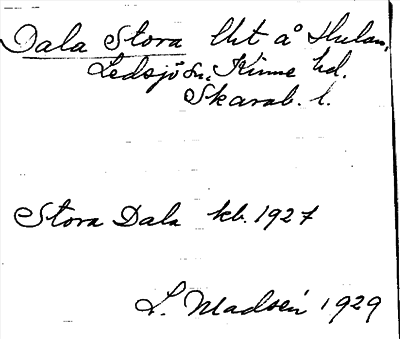 Dala Stora Uht å Hulan,
Ledsjö sn, Kinne hd.
Skarab. l.
Stora Dala kb. 1927
L. Madsén 1929